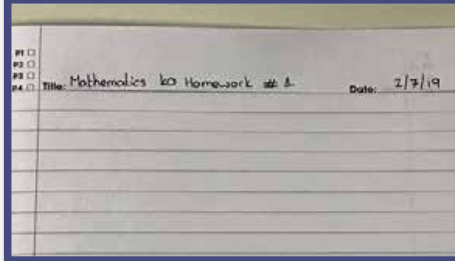 P1
P2
P3
P4
Title: Mathematics Homework # 1 Date: 2/7/19